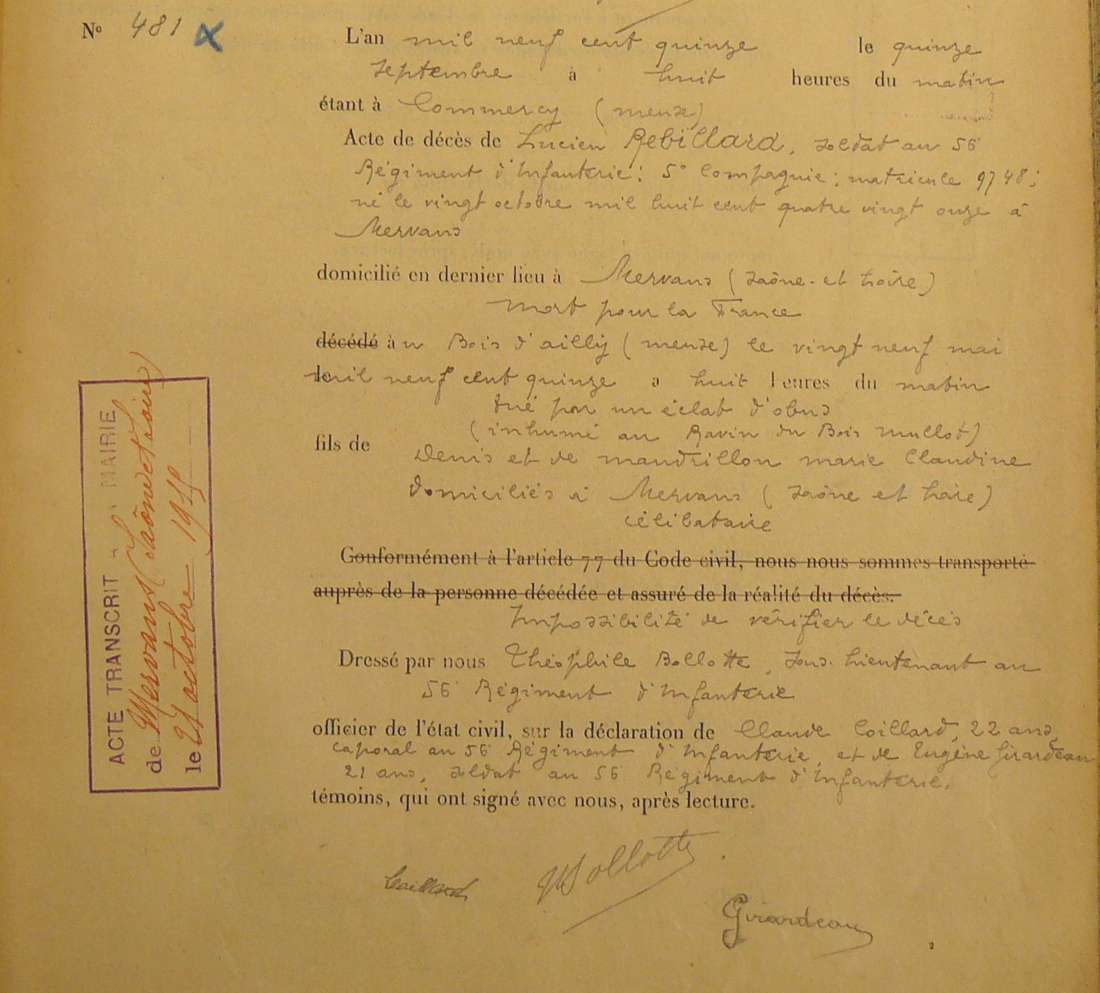 N° 481 X
L'an mil neuf cent quinze le quinze
septembre à huit heures du matin
étant à Commercy (meuse)
Acte de décès de Lucien Rebillard, soldat au 56
Régiment d'Infanterie; 5° Compagnie; matricule 9748;
né le vingt octobre mil huit cent quatre vingt onze à
Mervans
domicilié en dernier lieu à Mervans (Saône-et-Loire)
mort pour la France
décédé au Bois d'ailly (meuse) le vingt neuf mai
le mil neuf cent quinze a huit heures du matin
tué par un éclat d'obus
(inhumé au Ravin du Bois mullot)
fils de Denis et de mandrillon marie Claudine
domiciliés à Mervans (Saône et Loire)
célibataire
Conformément à l'article 77 du Code civil, nous nous sommes transporté
auprès de la personne décédée et assuré de la réalité du décès.
Impossibilité de vérifier le décès
Dressé par nous Théophile Bollotte, Sous-Lieutenant au
56 Régiment d'Infanterie
officier de l'état civil, sur la déclaration de Claude Coillard, 22 ans,
caporal au 56 Régiment d'Infanterie, et de Eugène Girardeau
21 ans, soldat au 56 Régiment d'Infanterie.
témoins, qui ont signé avec nous, après lecture.
Coillard Bollotte
Girardeau
ACTE TRANSCRIT à MAIRIE
de Mervans (Saône et Loire)
le 21 octobre 1915